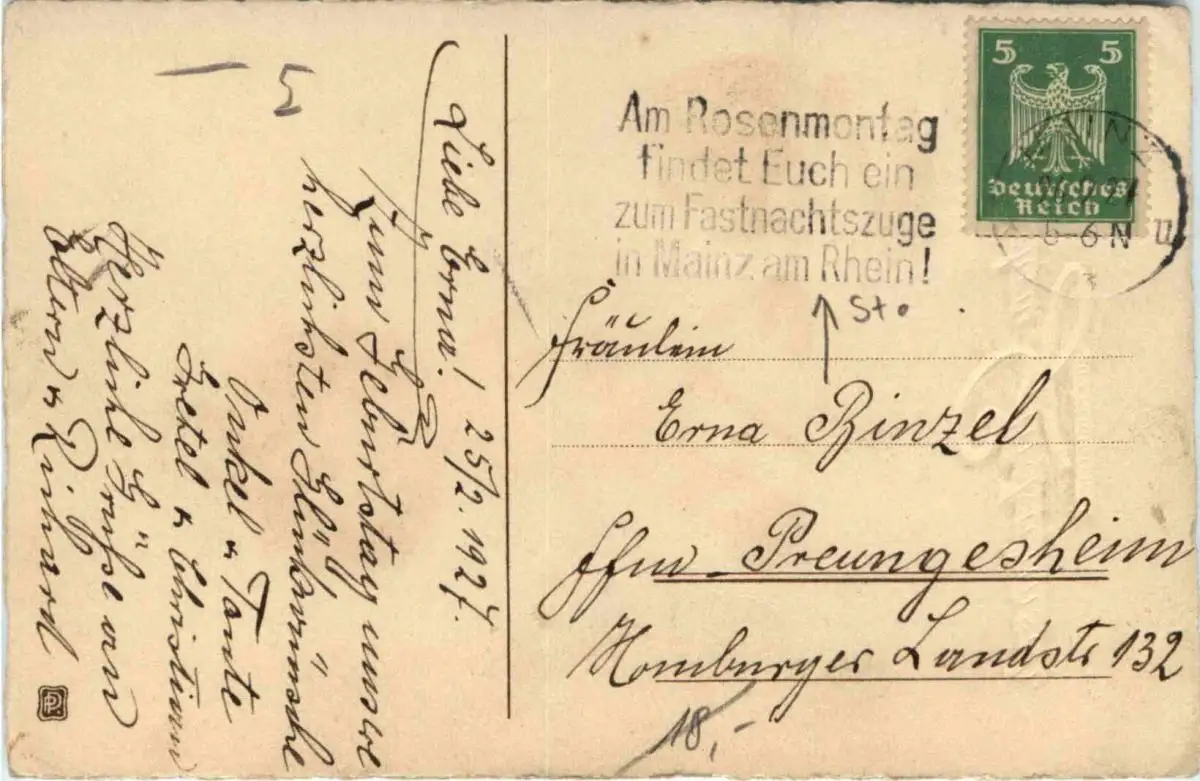 5
Liebe Erna! 25/2. 1927.
Zum Geburtstag unsere
herzlichsten Glückwünsche
Onkel u Tante
Gretel u Christian
Herzliche Grüße an
Eltern u Richard
Am Rosenmontag
findet Euch ein
zum Fastnachtszuge
in Mainz am Rhein!
5 5
Deutsches
Reich
MAINZ
6-6 N
Sto
Fräulein
Erna Binzel
Ffm - Preungesheim
Homburger Landstr 132
18,-